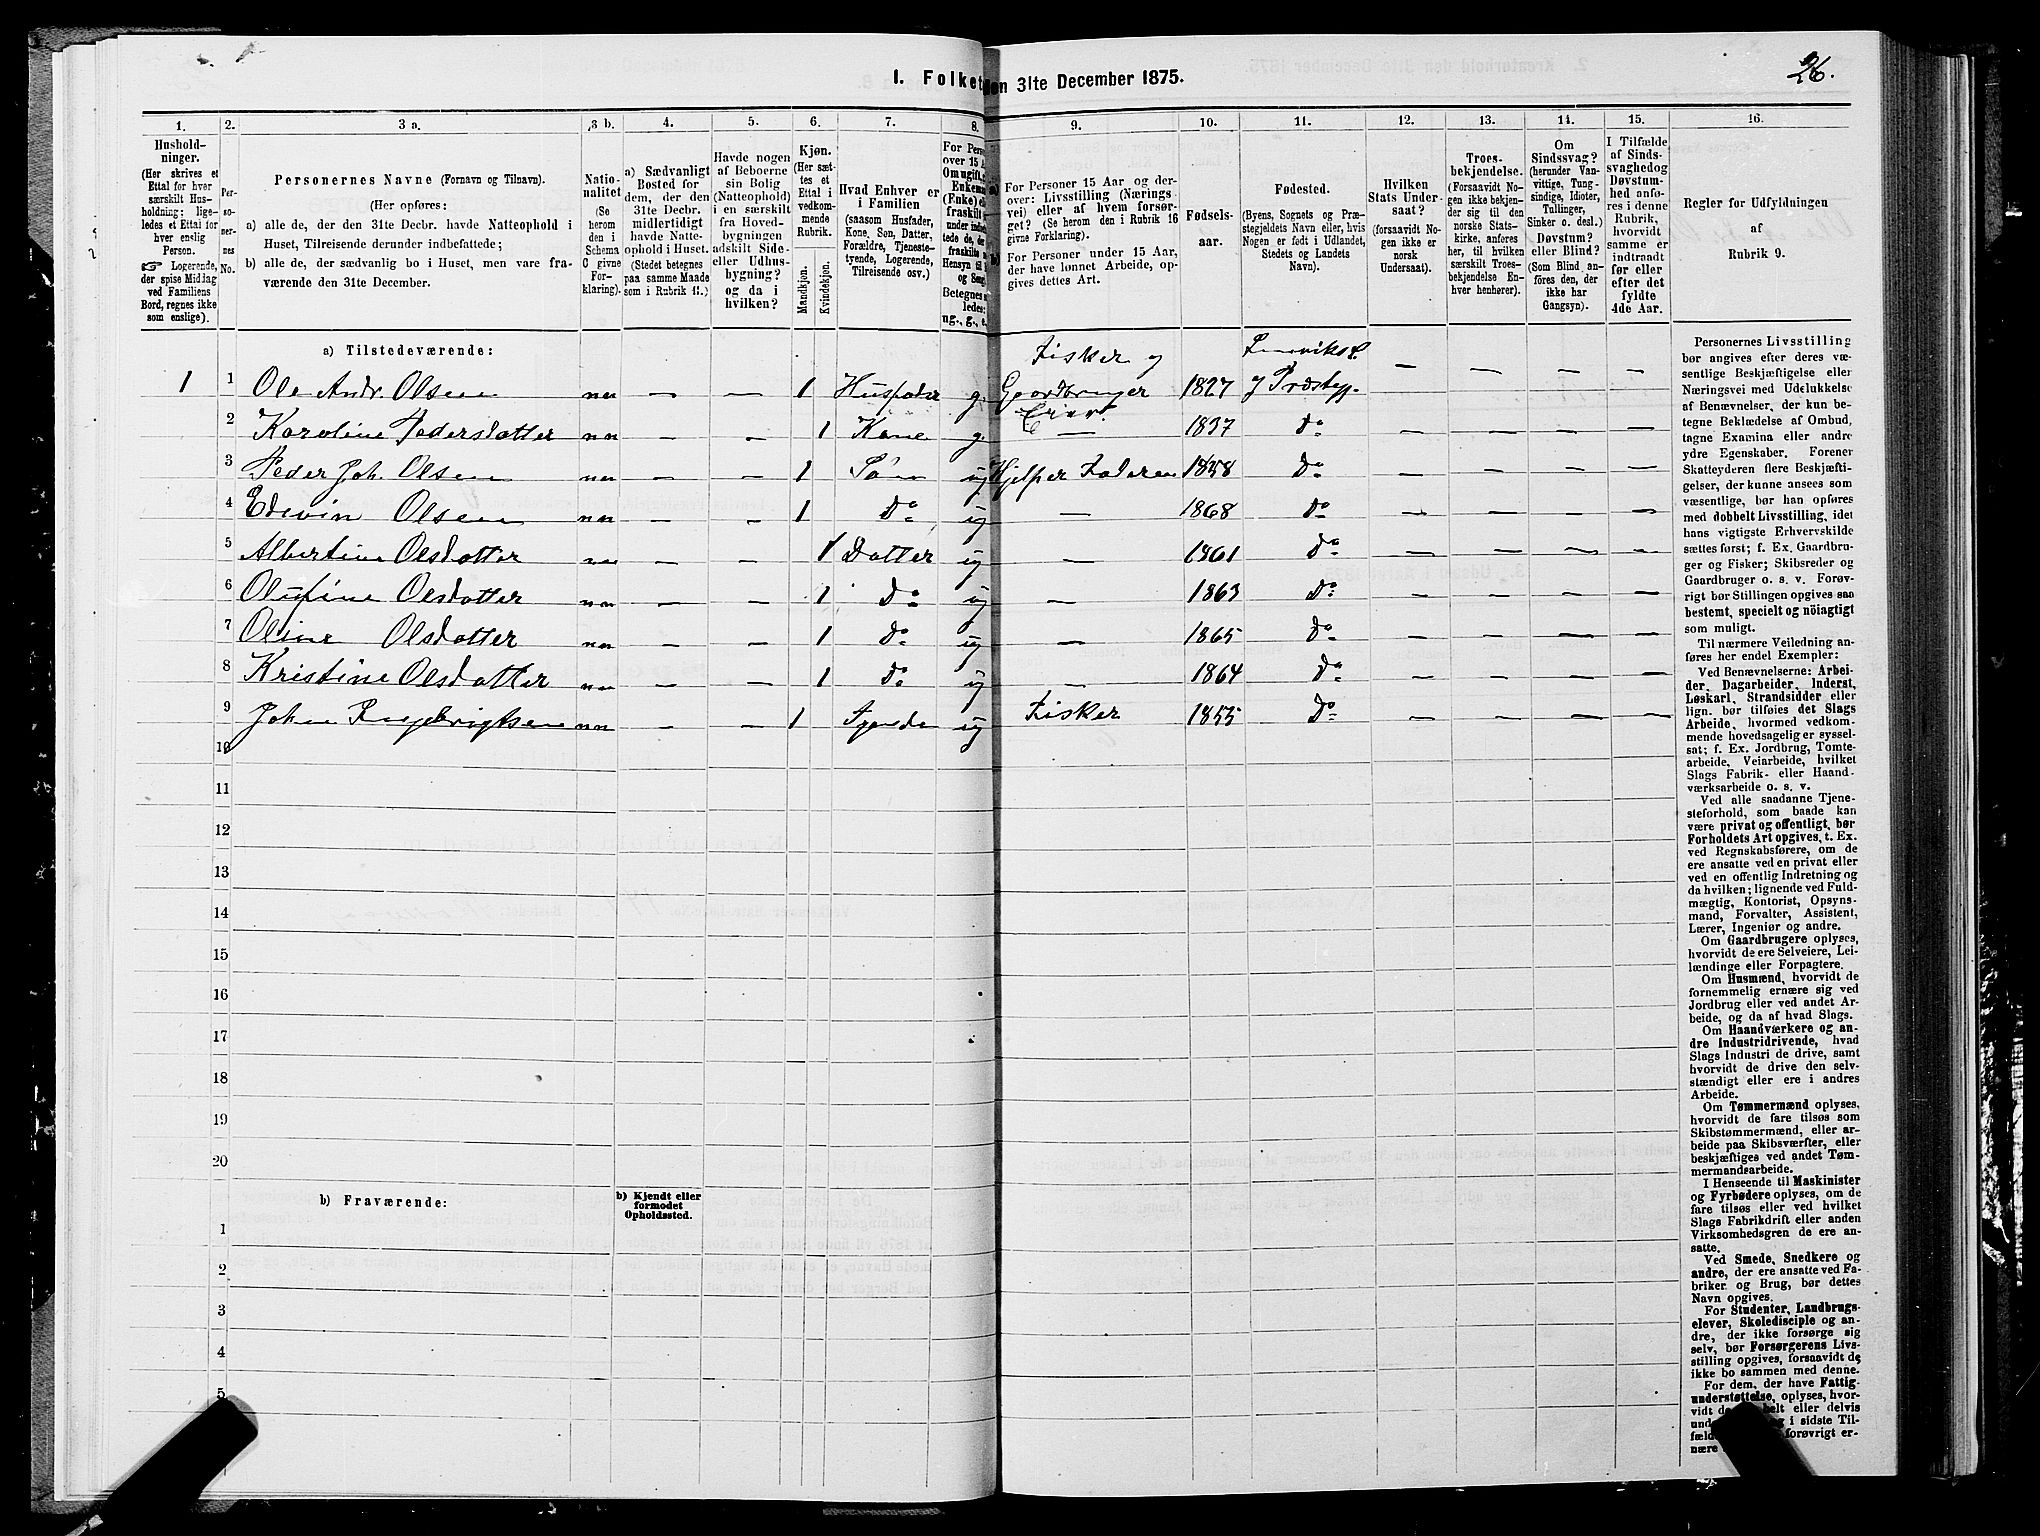 26.
I. Folketællingen 31te December 1875.
1. 2. 3 a. 3 b. 4. 5. 6. 7. 8. 9. 10. 11. 12. 13. 14. 15. 16.
Hushold-
ninger.
(Her skrives et
Ettal for hver
særskilt Hus-
holdning; lige-
ledes et Ettal for
hver enslig
Person.
☞ Logerende,
der spise Middag
ved Familiens
Bord, regnes ikke
som enslige).
Per-
so-
ner-
nes
No.
Personernes Navne (Fornavn og Tilnavn).
(Her opføres:
a) alle de, der den 31te Decbr. havde Natteophold i
Huset, Tilreisende derunder indbefattede;
b) alle de, der sædvanlig bo i Huset, men vare fra-
værende den 31te December.
Natio-
nalitet
(Se
herom
den i
Schema
C givne
For-
klaring).
a) Sædvanligt
Bosted for
dem, der den
31te Decbr.
midlertidigt
havde Natte-
ophold i Huset.
(Stedet betegnes
paa samme Maade
som i Rubrik 11.)
Havde nogen
af Beboerne
sin Bolig
(Natteophold)
i en særskilt
fra Hoved-
bygningen
adskilt Side-
eller Udhus-
bygning?
og da i
hvilken?
Kjøn.
(Her sæt-
tes et
Ettal i
vedkom-
mende
Rubrik.
Mandkjøn.
Kvindekjøn.
Hvad Enhver er
i Familien
(saasom Husfader,
Kone, Søn, Datter,
Forældre, Tjeneste-
tyende, Logerende,
Tilreisende osv.)
For Pers
over 15 A
Om ugift, g
Enkema
(Enke) elle
fraskilt
Betegnes
ledes:
ug., g., e.
For Personer 15 Aar og der-
over: Livsstilling (Nærings-
vei) eller af hvem forsør-
get? (Se herom den i Rubrik 16
givne Forklaring).
For Personer under 15 Aar,
der have lønnet Arbeide, op-
gives dettes Art.
Fødsels-
aar.
Fødested.
(Byens, Sognets og Præ-
stegjeldets Navn eller, hvis
Nogen er født i Udlandet,
Stedets og Landets
Navn).
Hvilken
Stats Under-
saat?
(forsaavidt No-
gen ikke er
norsk
Undersaat).
Troes-
bekjendelse.
(Forsaavidt No-
gen ikke bekjen-
der sig til den
norske Stats-
kirke, anføres
her, til hvilken
særskilt Troes-
bekjendelse En-
hver henhører).
Om
Sindssvag?
(herunder Van-
vittige, Tung-
sindige, Idioter,
Tullinger,
Sinker o. desl.)
Døvstum?
eller Blind?
(Som Blind an-
føres den, der
ikke har
Gangsyn).
I Tilfælde
af Sinds-
svaghed og
Døvstum-
hed anfø-
res i denne
Rubrik,
hvorvidt
samme er
indtraadt
før eller
efter det
fyldte
4de Aar.
Regler for Udfyldningen
af
Rubrik 9.
a) Tilstedeværende:
1 1 Ole Andr. Olsen nor — — 1 Husfader g. Fisker og Gaardbruger Eier 1827 Lenviks S. og Præstegj. — — — —
2 Karoline Pedersdatter nor — — 1 Kone g. — 1837 Do — — — —
3 Peder Joh. Olsen nor — — 1 Søn ug Hjelper Faderen 1858 Do — — — —
4 Edevin Olsen nor — — 1 Do ug — 1868 Do — — — —
5 Albertine Olsdatter nor — — 1 Datter ug — 1861 Do — — — —
6 Olufine Olsdatter nor — — 1 Do ug — 1863 Do — — — —
7 Oline Olsdatter nor — — 1 Do ug — 1865 Do — — — —
8 Kristine Olsdatter nor — — 1 Do ug — 1864 Do — — — —
9 Johan Ingebrigtsen nor — — 1 Tyende ug Fisker 1855 Do — — — —
10
11
12
13
14
15
16
17
18
19
20
b) Fraværende:
b) Kjendt eller
formodet
Opholdssted.
1
2
3
4
5
Personernes Livsstilling
bør angives efter deres væ-
sentlige Beskjæftigelse eller
Næringsvei med Udelukkelse
af Benævnelser, der kun be-
tegne Beklædelse af Ombud,
tagne Examina eller andre
ydre Egenskaber. Forener
Skatteyderen flere Beskjæfti-
gelser, der kunne ansees som
væsentlige, bør han opføres
med dobbelt Livsstilling, idet
hans vigtigste Erhvervskilde
sættes først; f. Ex. Gaardbru-
ger og Fisker; Skibsreder og
Gaardbruger o. s. v. Forøv-
rigt bør Stillingen opgives saa
bestemt, specielt og nöiagtigt
som muligt.
Til nærmere Veiledning an-
føres her endel Exempler:
Ved Benævnelserne: Arbei-
der, Dagarbeider, Inderst,
Løskarl, Strandsidder eller
lign. bør tilføies det Slags
Arbeide, hvormed vedkom-
mende hovedsagelig er syssel-
sat; f. Ex. Jordbrug, Tomte-
arbeide, Veiarbeide, hvilket
Slags Fabrik- eller Haand-
værksarbeide o. s. v.
Ved alle saadanne Tjene-
steforhold, som baade kan
være privat og offentligt, bør
Forholdets Art opgives, t. Ex.
ved Regnskabsførere, om de
ere ansatte ved en privat eller
ved en offentlig Indretning og
da hvilken; lignende ved Fuld-
mægtig, Kontorist, Opsyns-
mand, Forvalter, Assistent,
Lærer, Ingeniør og andre.
Om Gaardbrugere oplyses,
hvorvidt de ere Selveiere, Lei-
lændinge eller Forpagtere.
Om Husmænd, hvorvidt de
fornemmelig ernære sig ved
Jordbrug eller ved andet Ar-
beide, og da af hvad Slags.
Om Haandværkere og an-
dre Industridrivende, hvad
Slags Industri de drive, samt
hvorvidt de drive den selv-
stændigt eller ere i andres
Arbeide.
Om Tømmermænd oplyses,
hvorvidt de fare tilsøs som
Skibstømmermænd, eller ar-
beide paa Skibsværfter, eller
beskjæftiges ved andet Tøm-
mermandsarbeide.
I Henseende til Maskinister
og Fyrbødere oplyses, om de
fare tilsøs eller ved hvilket
Slags Fabrikdrift eller anden
Virksomhedsgren de ere an-
satte.
Ved Smede, Snedkere og
andre, der ere ansatte ved Fa-
briker og Brug, bør dettes
Navn opgives.
For Studenter, Landbrugs-
elever, Skoledisciple og an-
dre, der ikke forsørge sig
selv, bør Forsørgerens Livs-
stilling opgives, forsaavidt de
ikke bo sammen med denne.
For dem, der have Fattig-
understøttelse, oplyses, hvor-
vidt de helt eller delvis
i sidste Til-
forøvrigt er-
nære